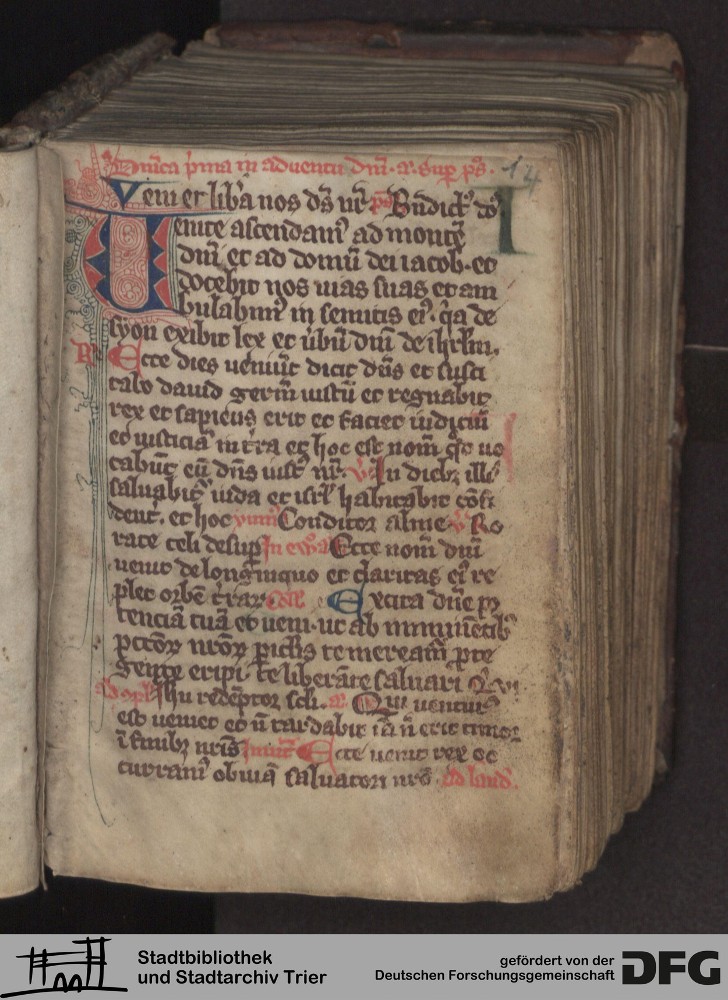 Dn̄ica p̄ma in aduentu dn̄i. a. Sup ps. 14
Veni et lib̄a nos dn̄s nr̄ ps Bn̄dictꝰ I
Uenite ascendamꝰ ad montē
dn̄i et ad domū dei iacob. et
docebit nos uias suas et am
bulabimꝰ in semitis eiꝰ. q̄a de
syon exibit lex et ūbū dn̄i de ihrlm̄.
R Ecce dies ueniūt dicit dn̄s et susci
tabo dauid germ̄ iustū et regnabit
rex et sapiens erit et faciet iudiciū
et iusticiā in t̄ra et hoc est nom̄ qd̄ uo
cabūt eū dn̄s iustꝰ nr̄. v̄ In diebꝫ illiꝰ
saluabit᷑ iuda et isrl̄ habitabit cōfi
dent᷑. et hoc ymnꝰ Conditor alme v̄ Ro
rate celi desup In ew̄a Ecce nom̄ dn̄i
uenit de longinquo et claritas eiꝰ re
plet orbē t̄rar᷑ Coll̄ Excita dn̄e po
tenciā tuā et ueni. ut ab imminētibꝰ
pctōꝝ nr̄oꝝ piclis te meream̄ pte
gente eripi. te liberāte saluari Qui
Ihu redēptor scl̄i. a. Qui uenturꝰ
est ueniet et n̄ tardabit iā n̄ erit timor
ī finibꝫ nr̄is Inuit᷑ Ecce uenit rex oc
curramꝰ obuiā saluatori nr̄o. ad laud̄.
Stadtbibliothek
und Stadtarchiv Trier
gefördert von der
Deutschen Forschungsgemeinschaft
DFG